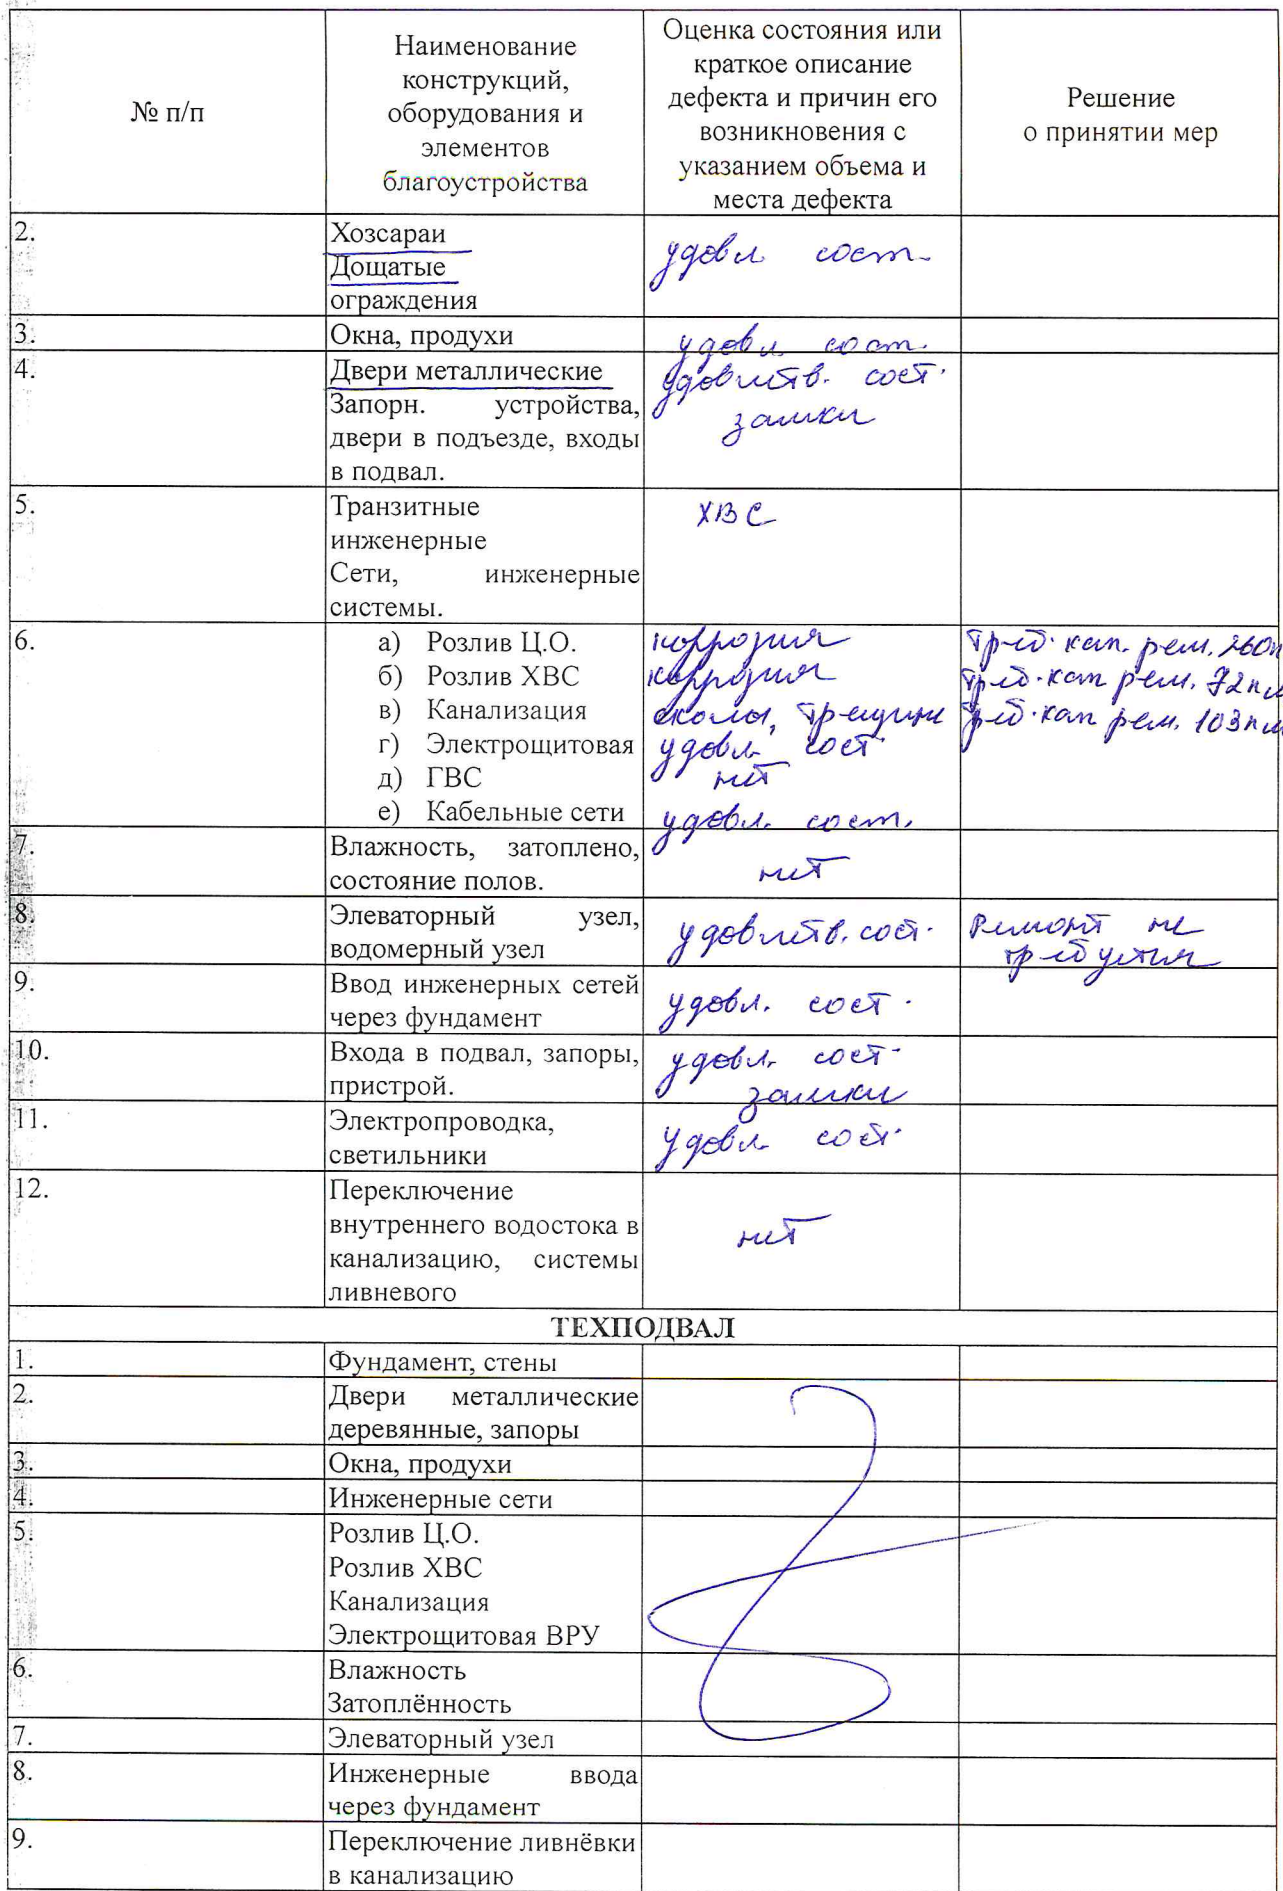 № п/п
Наименование
конструкций,
оборудования и
элементов
благоустройства
Оценка состояния или
краткое описание
дефекта и причин его
возникновения с
указанием объема и
места дефекта
Решение
о принятии мер
2.
Хозсараи
Дощатые
ограждения
удовл сост.
3.
Окна, продухи
удовл. сост.
4.
Двери металлические
Запорн. устройства,
двери в подъезде, входы
в подвал.
удовлетв. сост.
замки
5.
Транзитные
инженерные
Сети, инженерные
системы.
ХВС
6.
а) Розлив Ц.О.
коррозия
треб. кап. рем. 260п
б) Розлив ХВС
коррозия
треб. кап рем. 72п.м
в) Канализация
сколы, трещины
треб. кап рем. 103п.м
г) Электрощитовая
удовл. сост
д) ГВС
нет
е) Кабельные сети
удовл. сост.
7.
Влажность, затоплено,
состояние полов.
нет
8.
Элеваторный узел,
водомерный узел
удовлетв. сост.
Ремонт не
требуется
9.
Ввод инженерных сетей
через фундамент
удовл. сост.
10.
Входа в подвал, запоры,
пристрой.
удовл. сост.
замки
11.
Электропроводка,
светильники
удовл. сост.
12.
Переключение
внутреннего водостока в
канализацию, системы
ливневого
нет
ТЕХПОДВАЛ
1.
Фундамент, стены
2.
Двери металлические
деревянные, запоры
3.
Окна, продухи
4.
Инженерные сети
5.
Розлив Ц.О.
Розлив ХВС
Канализация
Электрощитовая ВРУ
6.
Влажность
Затоплённость
7.
Элеваторный узел
8.
Инженерные ввода
через фундамент
9.
Переключение ливнёвки
в канализацию